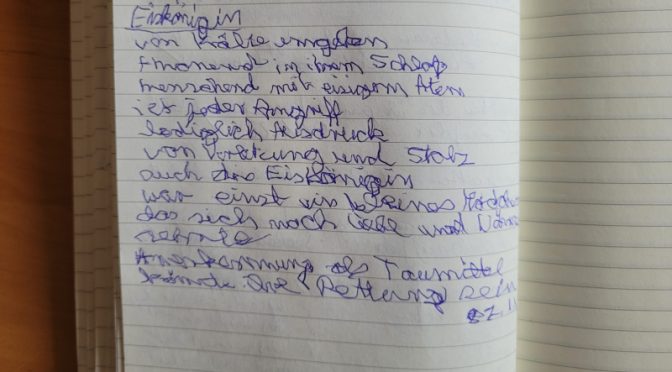 Eiskönigin
von Kälte umgeben
frierend in ihrem Schlaf
mit eisigem Atem
ist jeder Angriff
lediglich Ausdruck
von Verletzung und Stolz
auch die Eiskönigin
war einst ein kleines
das sich nach Liebe und
sehnte
Anerkennung als Taumittel
könnte ihre Rettung sein